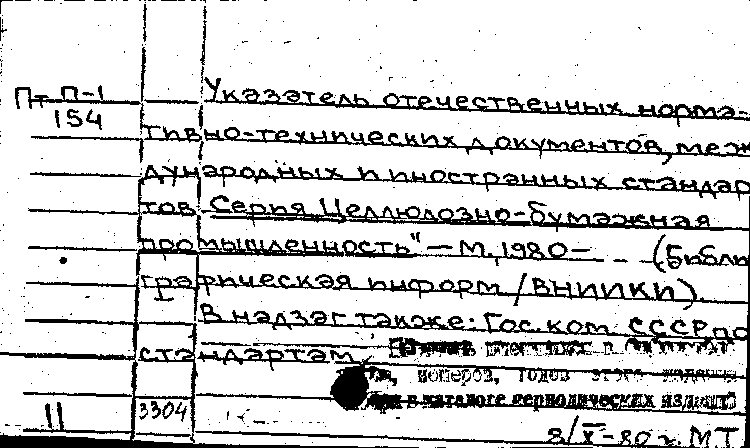 Пт П-1 Указатель отечественных норма-
154
тивно-технических документов, меж
дународных и иностранных стандар
тов Серия Целлюлозно-бумажная
промышленность" — М., 1980 — (Библи
графическая информ / ВНИИКИ).
В надзаг также: Гос. ком. СССР по
стандартам.
номеров, годов этого издания
в каталоге периодических изданий
II 3304
8/X-80 г. МТ